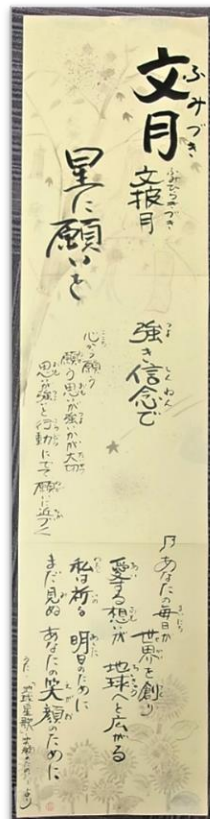 文月
ふみづき
文披月
ふみひらづき
星に願いを
強き信念で
つよ しんねん
心から願う
願う思いが強いかが大切
思いが強いと行動にでて願いに近づく
乃 あなたの毎日が
世界を創り
愛する想いが 地球へ広がる
私は祈る 明日のために
まだ見ぬ あなたの笑顔のために